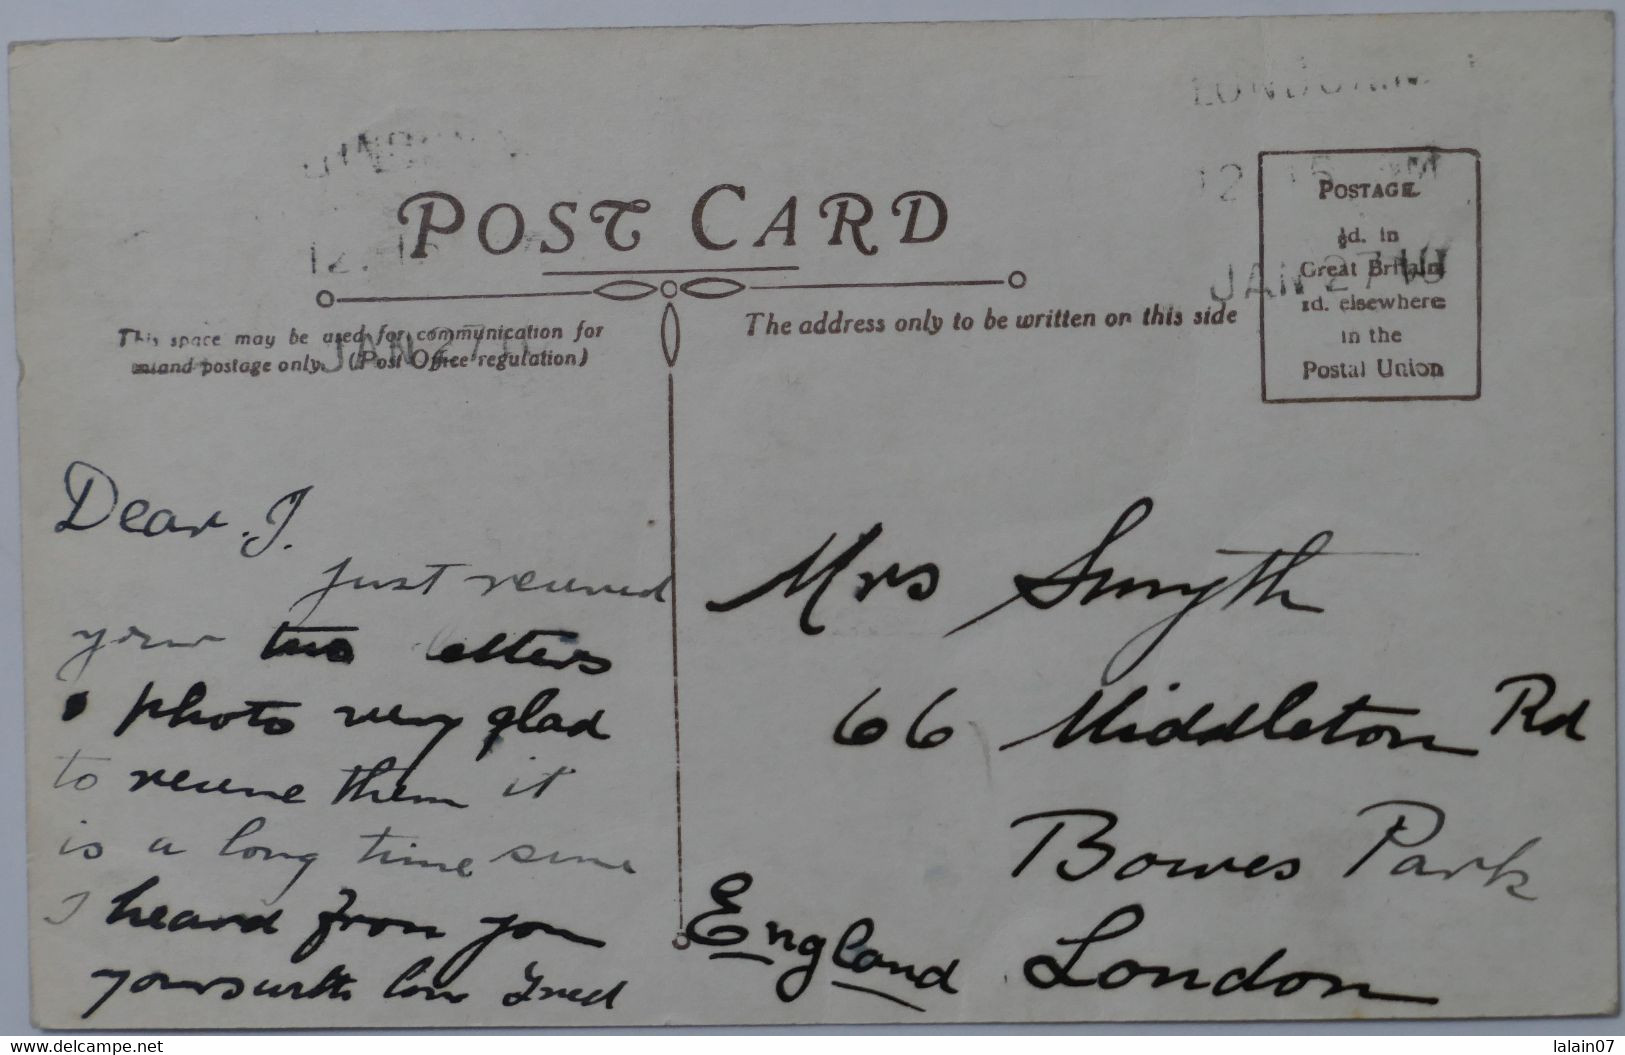 POST CARD
This space may be used for communication for
inland postage only. (Post Office regulation)
The address only to be written on this side
POSTAGE
½d. in
Great Britain
1d. elsewhere
in the
Postal Union
12.15 PM
JAN 27 10
Dear J.
just received
your two letters
photo very glad
to receive them it
is a long time since
I heard from you
yours with love Fred
Mrs Smyth
66 Middleton Rd
Bowes Park
England London
www.delcampe.net
lalain07